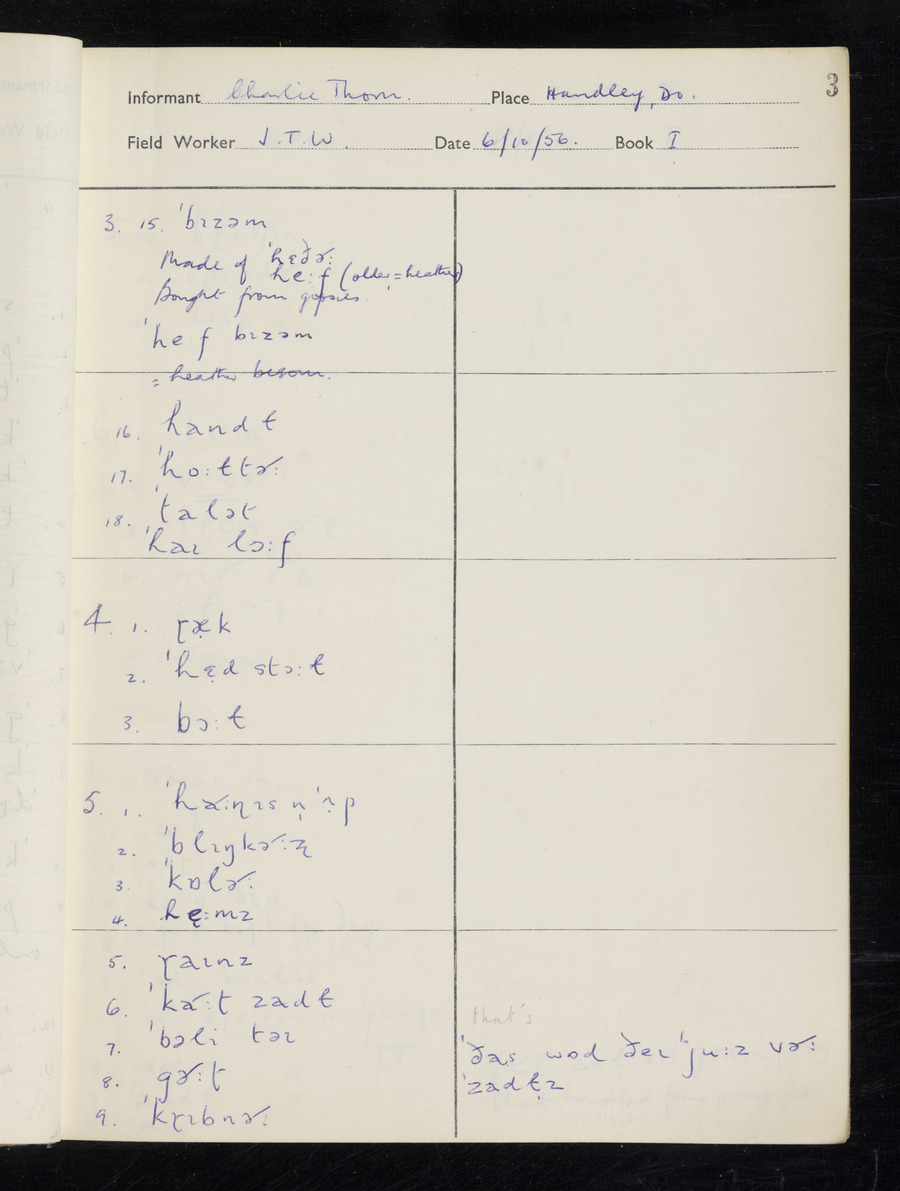 3
Informant Charlie Thorn. Place Handley, Do.
Field Worker J.T.W. Date 6/10/56. Book I
3. 15. ˈbɪzəm
Made of ˈhɛðɚ:
he:f (older = heather)
Bought from gypsies
ˈhe f bɪzəm
= heather besom.
16. handɫ
17. ˈho:ɫtɚ:
18. ˈtalət
ˈhaɪ lɔ:f
4. 1. ɽæ̣k
2. ˈhɛ̣d stɔ:ɫ
3. bɔ:ɫ
5. 1.
2. ˈblɪŋkɚ:ʐ
3. ˈkɒlɚ:
4. hẹ:mz
5. ɽaɪnz
6. ˈkɑ˞:t zadɫ
7. ˈbəli təɪ
8. gɚ:ʈ
9. ˈkɽɪbnɚ:
that's
ˈðas wɒd ðeɪ ˈju:z vɚ:
ˈzadɫz